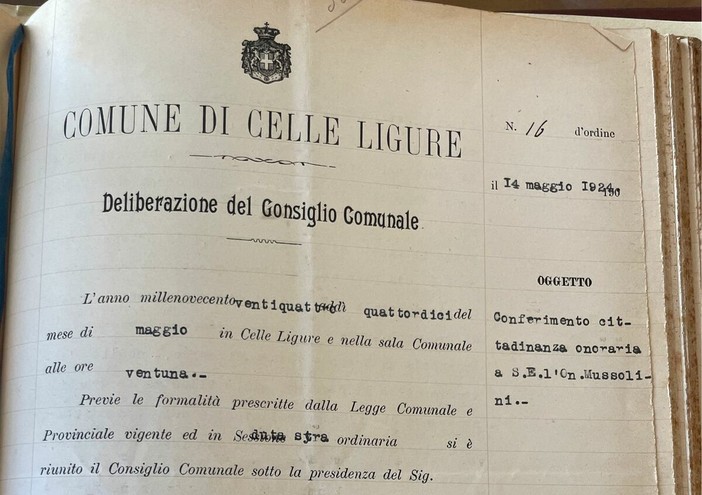 COMUNE DI CELLE LIGURE
Deliberazione del Consiglio Comunale
N. 16 d'ordine
il 14 maggio 1924. 190
OGGETTO
Conferimento cit-
tadinanza onoraria
a S.E.l'On.Mussoli-
ni.-
L'anno millenovecentoventiquattro addì quattordici del
mese di maggio in Celle Ligure e nella sala Comunale
alle ore ventuna.-
Previe le formalità prescritte dalla Legge Comunale e
Provinciale vigente ed in Sessione stra ordinaria si è
riunito il Consiglio Comunale sotto la presidenza del Sig.